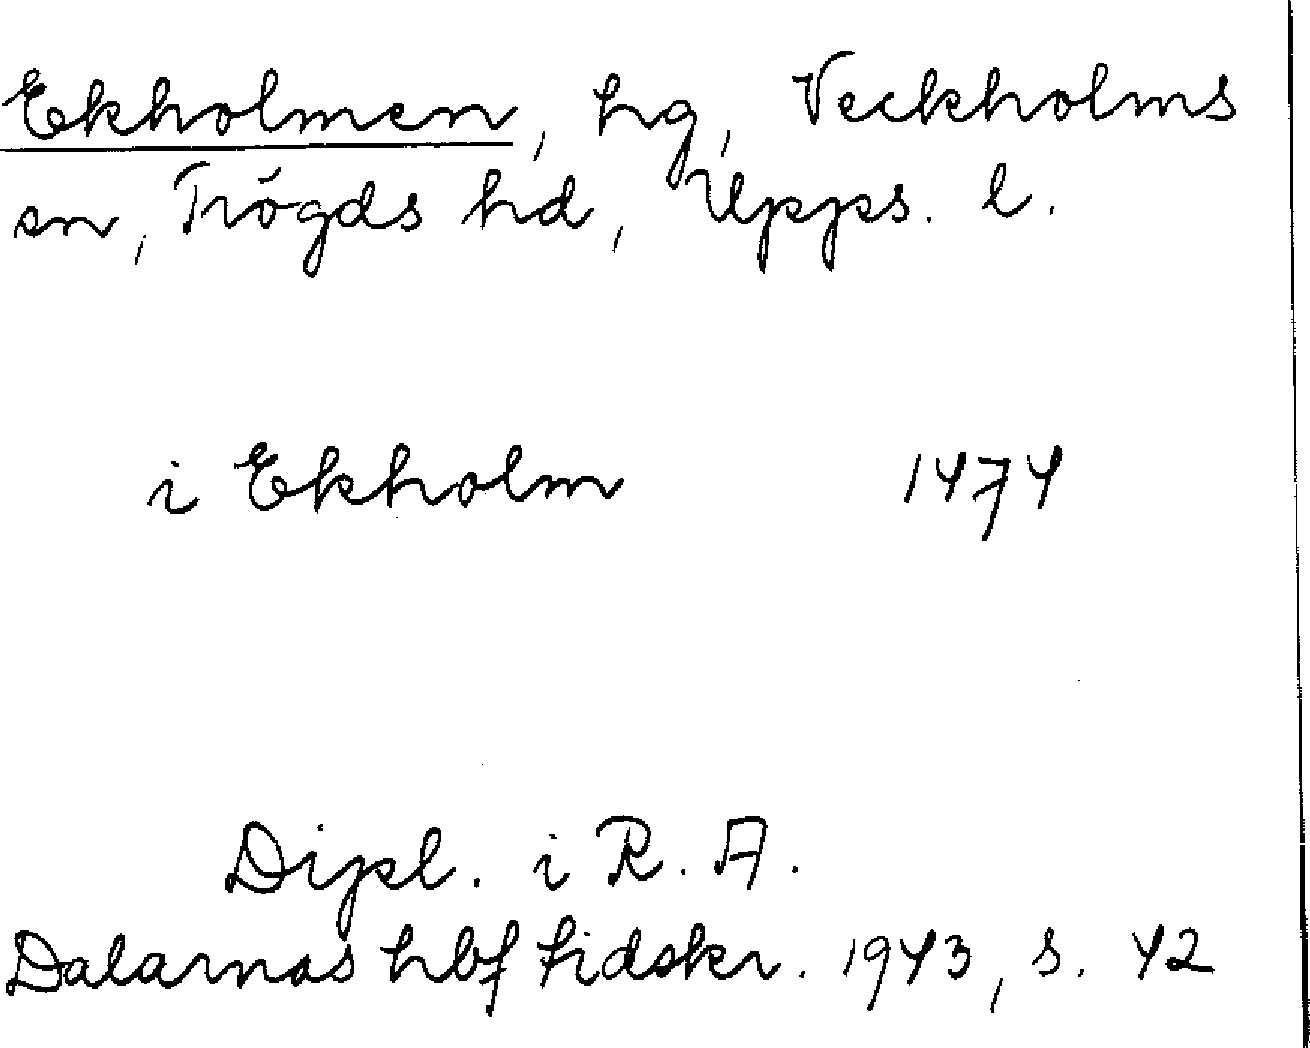 Ekholmen, hg, Veckholms
sn, Trögds hd, Upps. l.
i Ekholm 1474
Dipl. i R. A.
Dalarnas hbf tidskr. 1943, s. 42